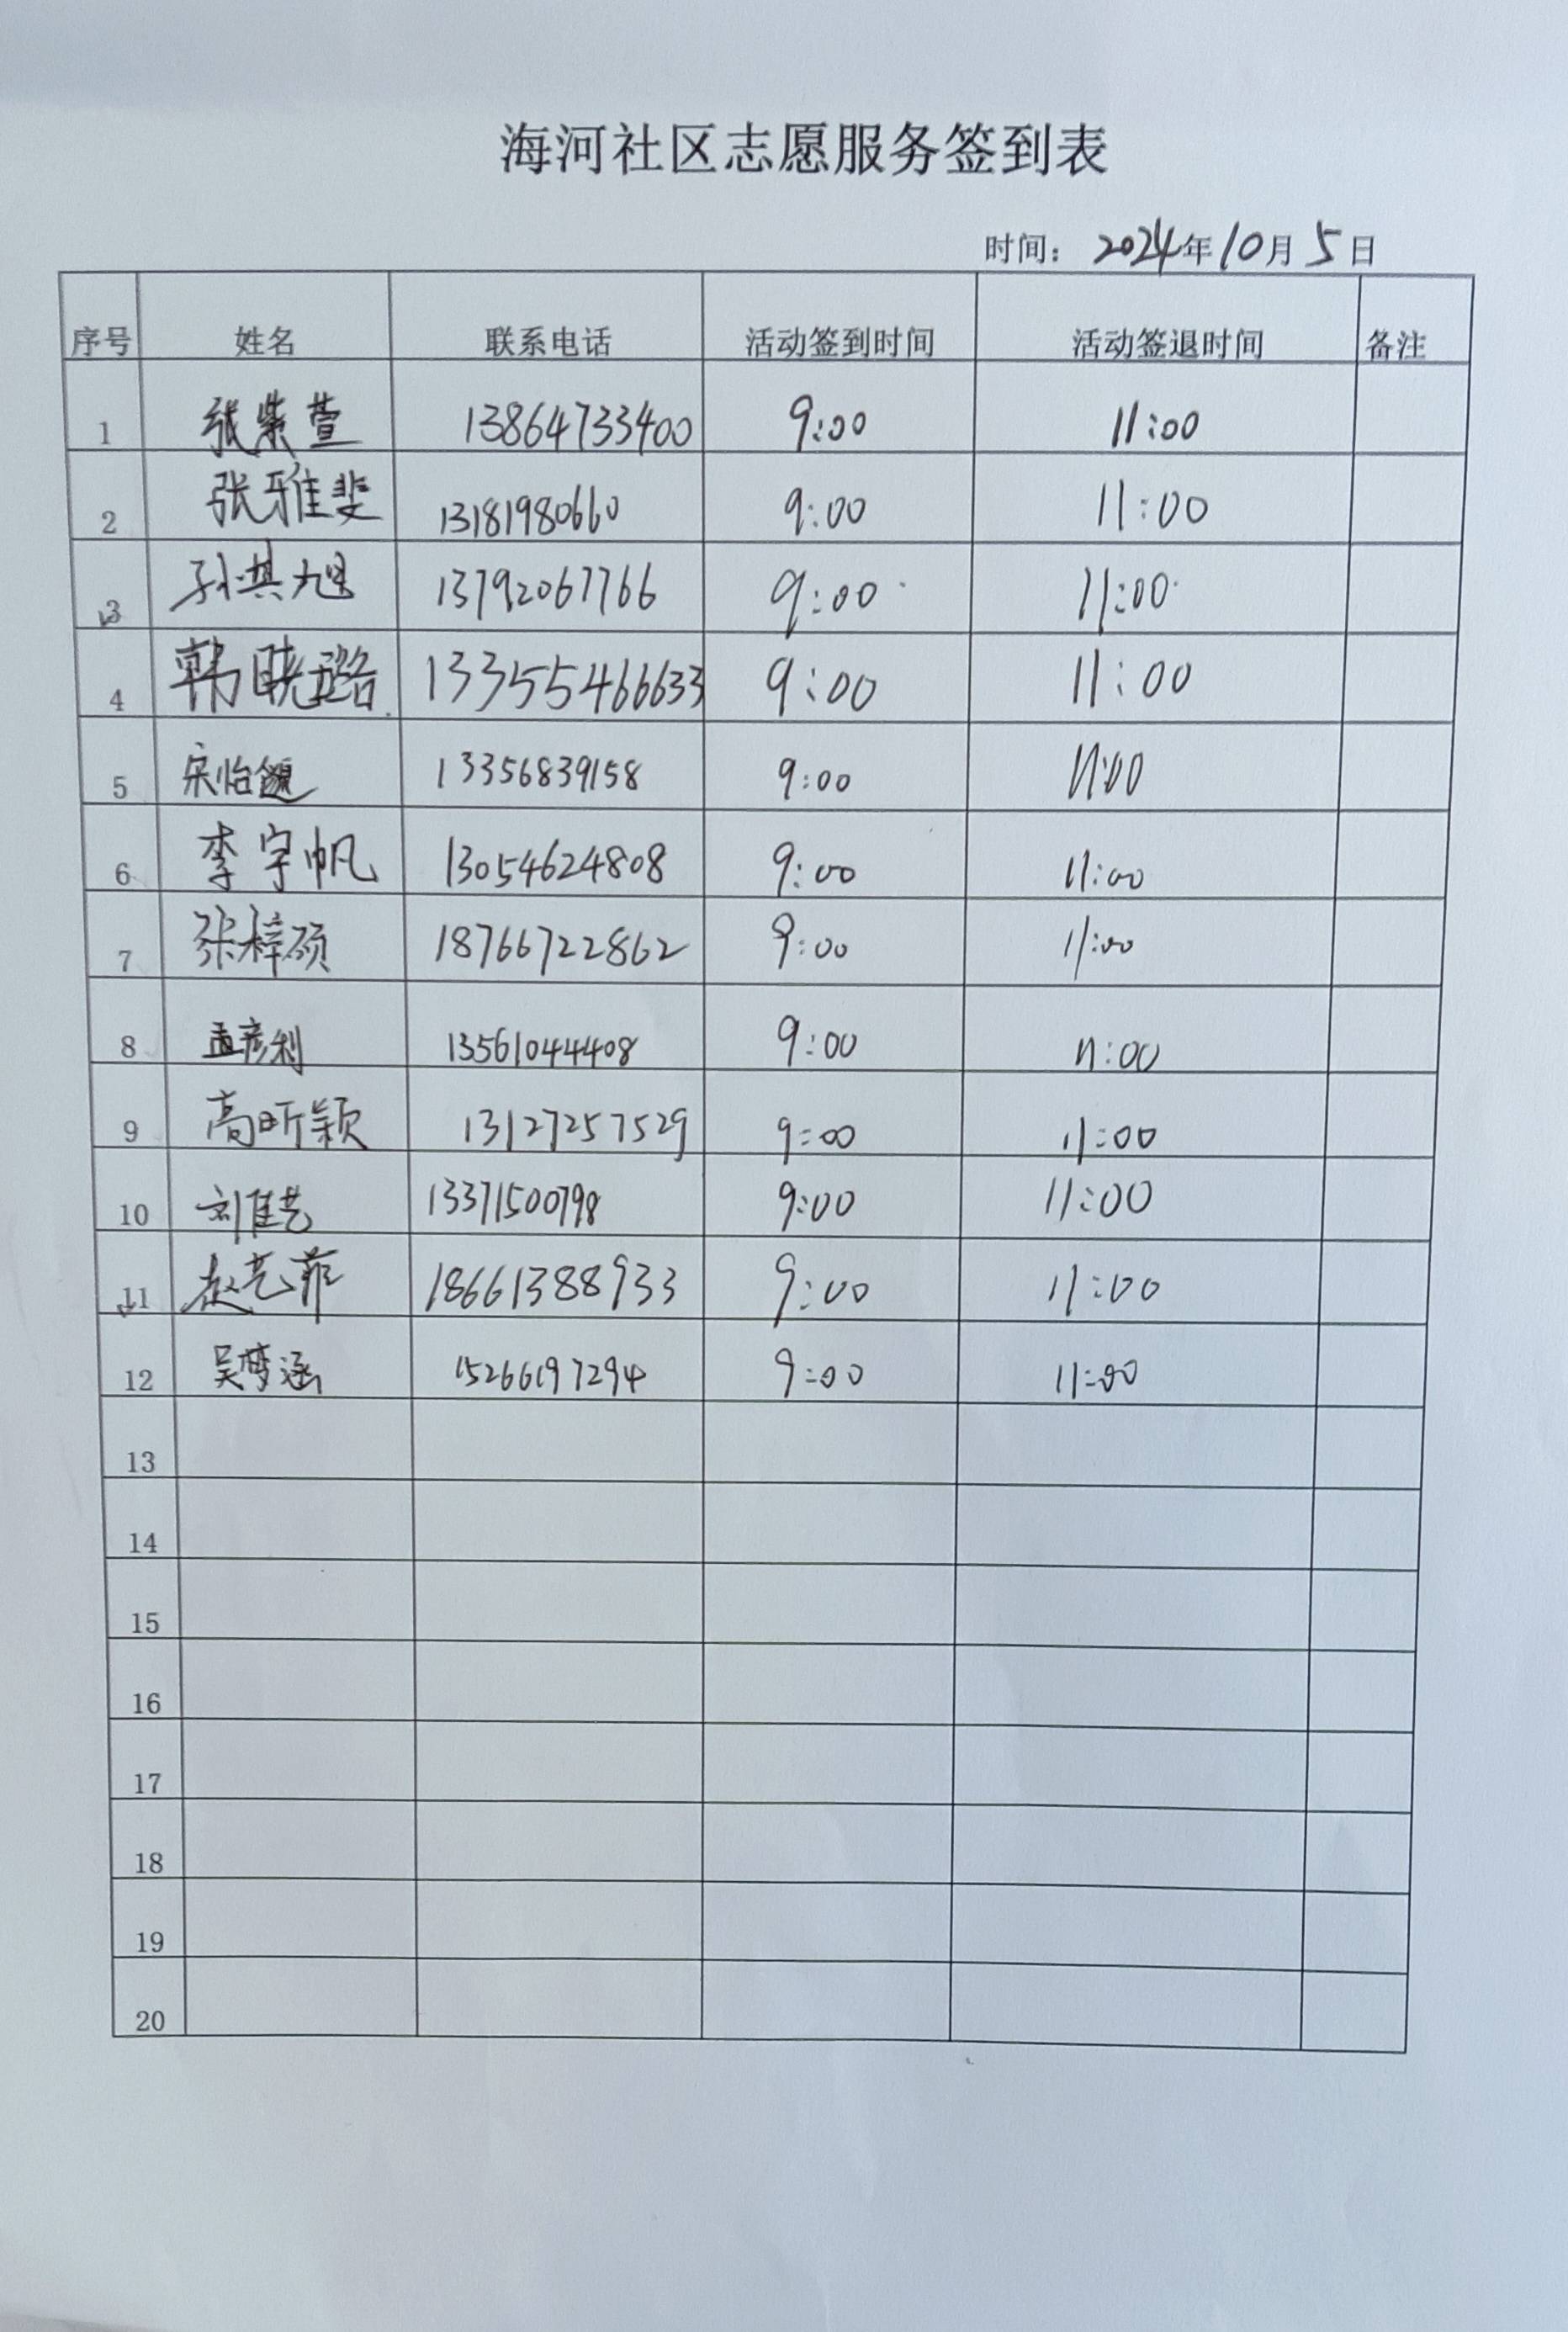 海河社区志愿服务签到表
时间： 2024年10月5日
序号 姓名 联系电话 活动签到时间 活动签退时间 备注
1 张紫萱 13864733400 9:00 11:00
2 张雅斐 13181980660 9:00 11:00
3 孙淇旭 13792067766 9:00 11:00
4 韩晓璐 13355466633 9:00 11:00
5 宋怡 13356839158 9:00 11:00
6 李宇帆 13054624808 9:00 11:00
7 张梓硕 18766722862 9:00 11:00
8 孟彦利 13561044408 9:00 11:00
9 高昕颖 13127257529 9:00 11:00
10 刘佳艺 13371500798 9:00 11:00
11 赵艺菲 18661388933 9:00 11:00
12 吴梦涵 15266197294 9:00 11:00
13
14
15
16
17
18
19
20